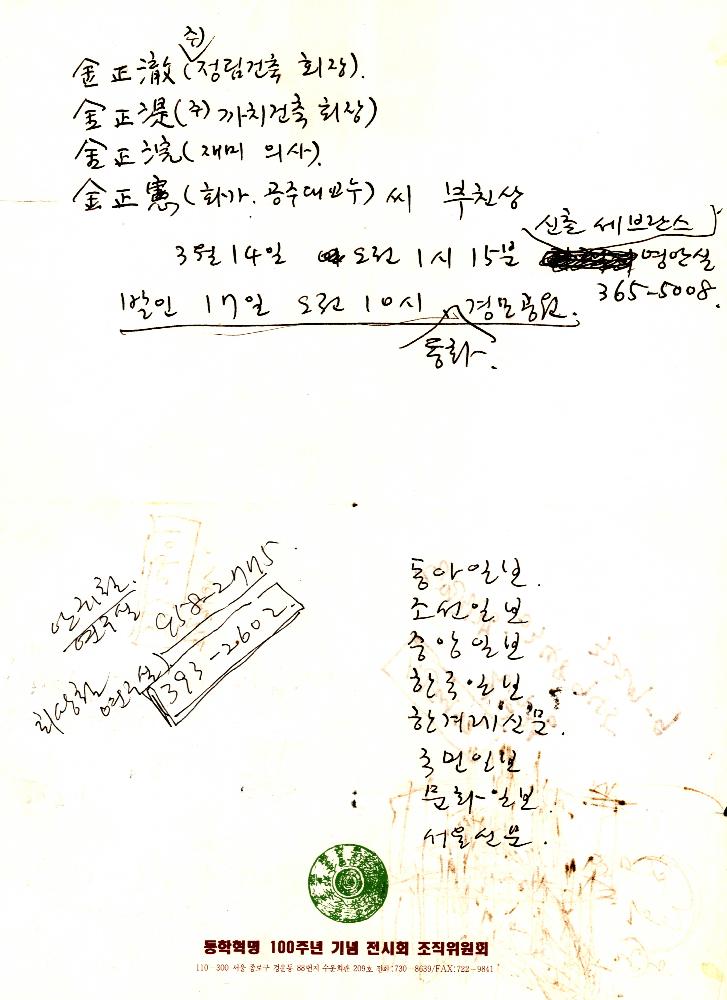 金正澈(주)정림건축 회장).
金正湜(주)까치건축 회장)
金正浣(재미 의사).
金正憲(화가. 공주대교수)씨 부친상
3월 14일 오전 1시 15분 신촌 세브란스 영안실
365-5008.
발인 17일 오전 10시 경모공원.
통화.
958-2775
연구실 393-2602.
동아일보.
조선일보
중앙일보
한국일보
한겨레신문.
국민일보
문화일보
서울신문.
동학혁명 100주년 기념 전시회 조직위원회
110-300 서울 종로구 경운동 88번지 수운회관 209호 전화:730-8639/FAX:722-9841